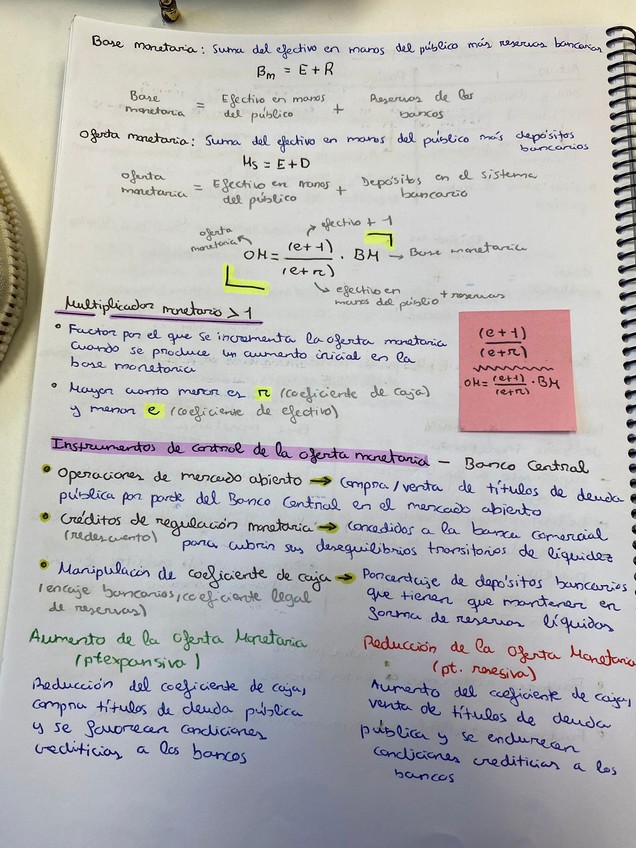 Base monetaria: Suma del efectivo en manos del público más reservas bancarias
Bm = E + R
Base monetaria = Efectivo en manos del público + Reservas de los bancos
Oferta monetaria: Suma del efectivo en manos del público más depósitos bancarios
Ms = E + D
Oferta monetaria = Efectivo en manos del público + Depósitos en el sistema bancario
oferta monetaria
efectivo + 1
OM = (e+1)/(e+r) · BM → Base monetaria
efectivo en manos del público + reservas
Multiplicador monetario > 1
° Factor por el que se incrementa la oferta monetaria
cuando se produce un aumento inicial en la
base monetaria
° Mayor cuanto menor es r (coeficiente de caja)
y menor e (coeficiente de efectivo)
(e+1)/(e+r)
OM = (e+1)/(e+r) · BM
Instrumentos de control de la oferta monetaria – Banco Central
• Operaciones de mercado abierto → compra/venta de títulos de deuda
pública por parte del Banco Central en el mercado abierto
• Créditos de regulación monetaria → concedidos a la banca comercial
(redescuento) para cubrir sus desequilibrios transitorios de liquidez
• Manipulación de coeficiente de caja → Porcentaje de depósitos bancarios
(encaje bancarios, coeficiente legal que tienen que mantener en
de reservas) forma de reservas líquidas
Aumento de la Oferta Monetaria
(pt expansiva)
Reducción del coeficiente de caja,
compra títulos de deuda pública
y se favorecen condiciones
crediticias a los bancos
Reducción de la Oferta Monetaria
(pt.
Aumento del coeficiente de caja,
venta de títulos de deuda
pública y se endurecen
condiciones crediticias a los
bancos